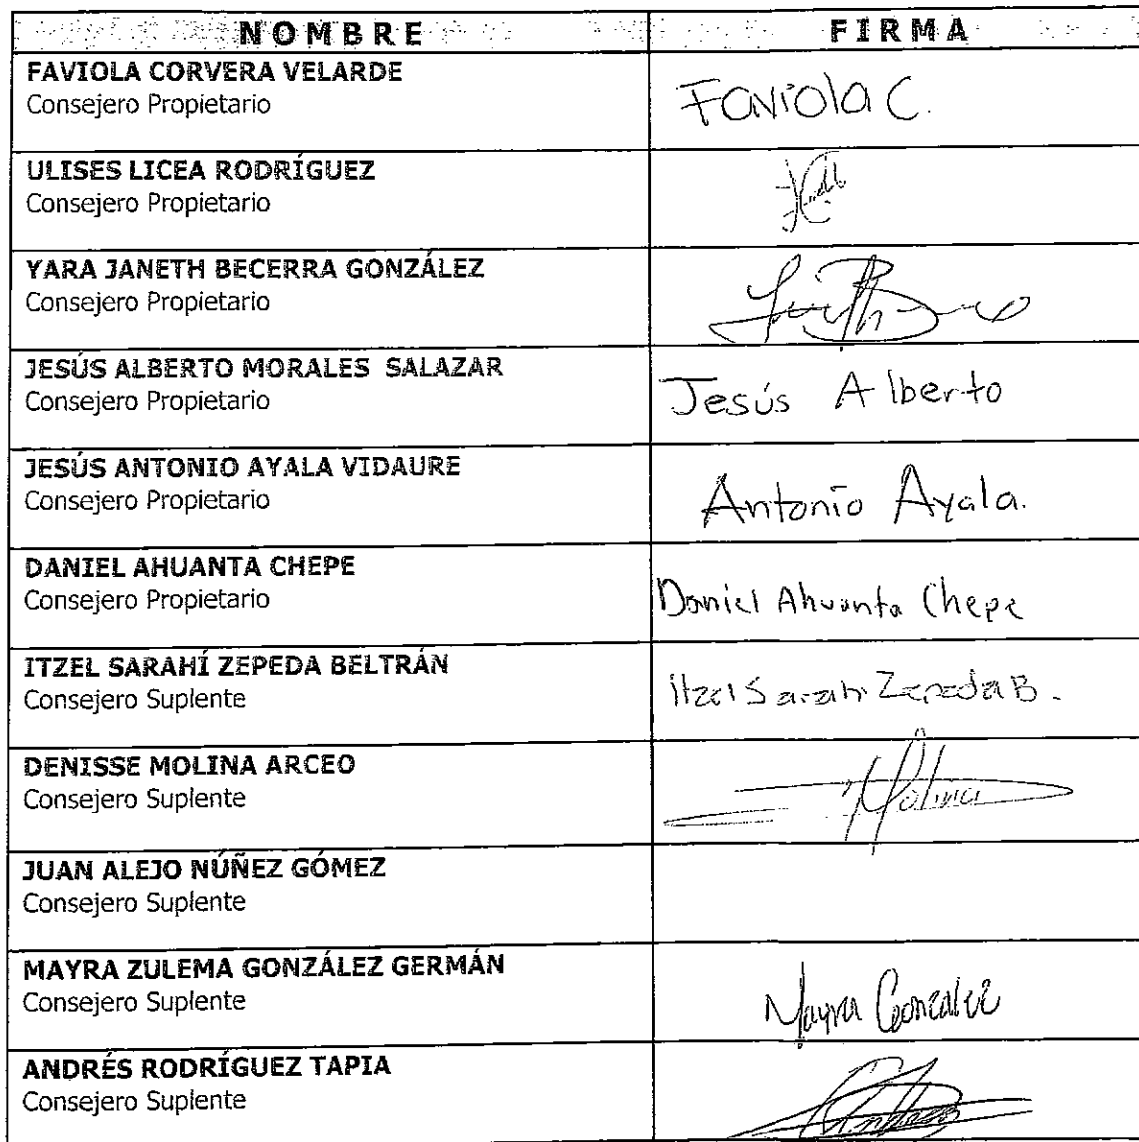 NOMBRE FIRMA
FAVIOLA CORVERA VELARDE
Consejero Propietario
Faviola C.
ULISES LICEA RODRÍGUEZ
Consejero Propietario
YARA JANETH BECERRA GONZÁLEZ
Consejero Propietario
JESÚS ALBERTO MORALES SALAZAR
Consejero Propietario
Jesús Alberto
JESÚS ANTONIO AYALA VIDAURE
Consejero Propietario
Antonio Ayala.
DANIEL AHUANTA CHEPE
Consejero Propietario
Daniel Ahuanta Chepe
ITZEL SARAHÍ ZEPEDA BELTRÁN
Consejero Suplente
Itzel Sarahi Zepeda B.
DENISSE MOLINA ARCEO
Consejero Suplente
Molina
JUAN ALEJO NÚÑEZ GÓMEZ
Consejero Suplente
MAYRA ZULEMA GONZÁLEZ GERMÁN
Consejero Suplente
Mayra Gonzalez
ANDRÉS RODRÍGUEZ TAPIA
Consejero Suplente